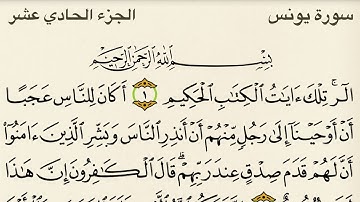 سورة يونس الجزء الحادي عشر
بِسْمِ اللَّهِ الرَّحْمَٰنِ الرَّحِيمِ
الٓرۚ تِلْكَ ءَايَٰتُ ٱلْكِتَٰبِ ٱلْحَكِيمِ ١ أَكَانَ لِلنَّاسِ عَجَبًا
أَنْ أَوْحَيْنَآ إِلَىٰ رَجُلٍ مِّنْهُمْ أَنْ أَنذِرِ ٱلنَّاسَ وَبَشِّرِ ٱلَّذِينَ ءَامَنُوٓا۟
أَنَّ لَهُمْ قَدَمَ صِدْقٍ عِندَ رَبِّهِمْۗ قَالَ ٱلْكَٰفِرُونَ إِنَّ هَٰذَا